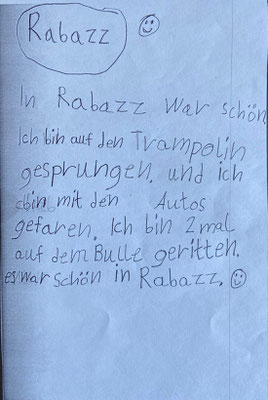 Rabazz
In Rabazz war schön
Ich bin auf den Trampolin
gesprungen. und ich
bin mit den Autos
gefaren. Ich bin 2 mal
auf dem Bulle geritten.
es war schön in Rabazz.